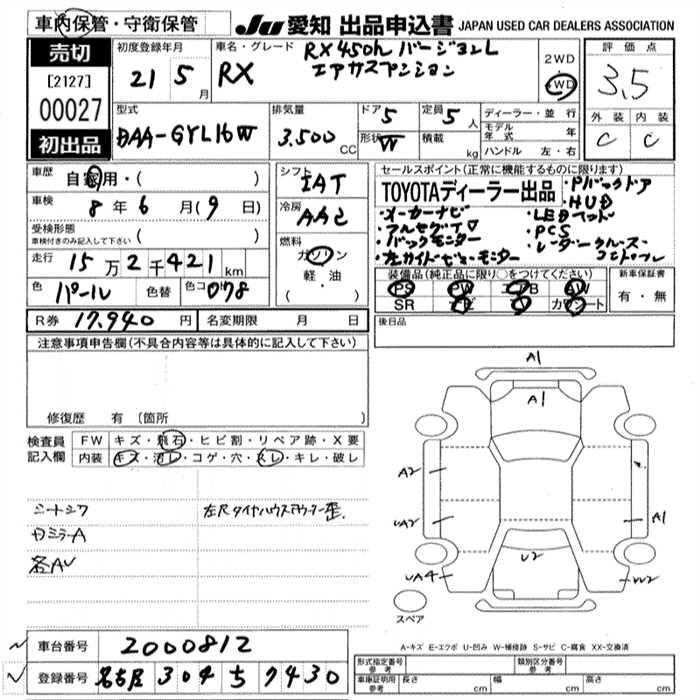 車内保管・守衛保管
JU 愛知 出品申込書 JAPAN USED CAR DEALERS ASSOCIATION
売切
[2127]
00027
初出品
初度登録年月
21 5 月
車名・グレード
RX
RX450h バージョンL
エアサスペンション
2WD
4WD
評価点
3.5
外装 内装
C C
型式
DAA-GYL16W
排気量
3.500 CC
ドア 5
形状 W
定員 5 人
積載 kg
ディーラー・並行
モデル年式 年
ハンドル 左・右
車歴
自家用・( )
車検
8 年 6 月 ( 9 日)
受検形態
車検付きのみ記入して下さい ( )
走行
15 万 2 千 421 km
色
パール
色替
色コ 078
シフト
IAT
冷房
AAC
燃料
ガソリン
軽・油
( ・ )
セールスポイント(正常に機能するものに限ります)
TOYOTAディーラー出品
・Pバックドア
・HUD
・メーカーナビ
・LEDヘッド
・フルセグTV
・PCS
・バックモニター
・レーダークルーズ
コントロール
・左サイドビューモニター
装備品(純正品に限り○をつけてください)
PS PW エアB AW
SR ナビ 革 カワシート
新車保証書
有・無
R券 17.940 円
名変期限 月 日
後日品
注意事項申告欄(不具合内容等は具体的に記入して下さい)
修復歴 有 (箇所 )
検査員
記入欄
FW キズ・飛石・ヒビ割・リペア跡・X要
内装 キズ・汚レ・コゲ・穴・スレ・キレ・破レ
シートシワ
左Rタイヤハウスアウター歪.
ガミラーA
各AU
A1
A1
A2
UA2
A1
U2
UA4
UU2
スペア
A-キズ E-エクボ U-凹み W-補修跡 S-サビ C-腐食 XX-交換済
車台番号 2000812
登録番号 名古屋 304 ち 7430
形式指定番号 参考
類別区分番号 参考
車庫証明用 参考
長さ cm 幅 cm 高さ cm